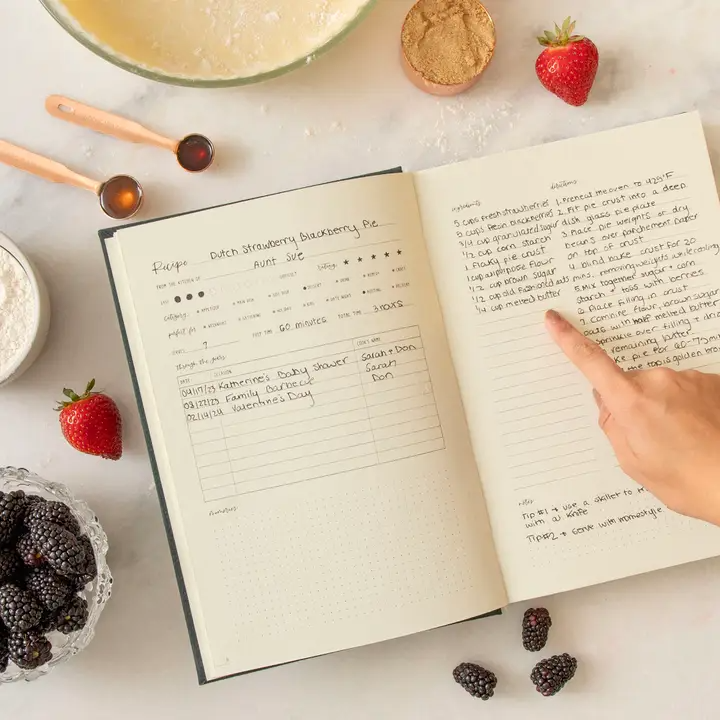 Recipe Dutch Strawberry Blackberry Pie
FROM THE KITCHEN OF Aunt Sue
EASY
Rating ★ ★ ★ ★ ★
Category
perfect for
SERVES 7 PREP TIME 60 minutes TOTAL TIME 3 hours
through the years
DATE OCCASION COOK'S NAME
04/17/23 Katherine's Baby Shower Sarah + Dan
Family Barbecue Sarah
02/14/24 Valentine's Day Dan
memories
ingredients
5 cups fresh strawberries
3/4 cup granulated sugar
1/2 cup corn starch
1 flaky pie crust
1 cup all purpose flour
1/2 cup brown sugar
1/2 cup old fashioned oats
1/4 cup melted butter
directions
1. Preheat the oven to 425°F
2. Fit pie crust into a deep
dish glass pie plate
3. Place pie weights or dry
beans over parchment paper
on top of crust
4. blind bake crust for 20
mins, removing weights while cooling
5. Mix together sugar + corn
starch + toss with berries
6. Place filling in crust
7. Combine flour, brown sugar
oats with half melted butter
sprinkle over filling +
remaining butter
pie for
the top is golden
notes
Tip #1 → use a skillet to
with a knife
Tip #2 → Serve with homestyle